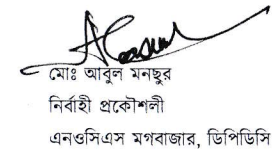 মোঃ আবুল মনছুর
নির্বাহী প্রকৌশলী
এনওসিএস মগবাজার, ডিপিডিসি